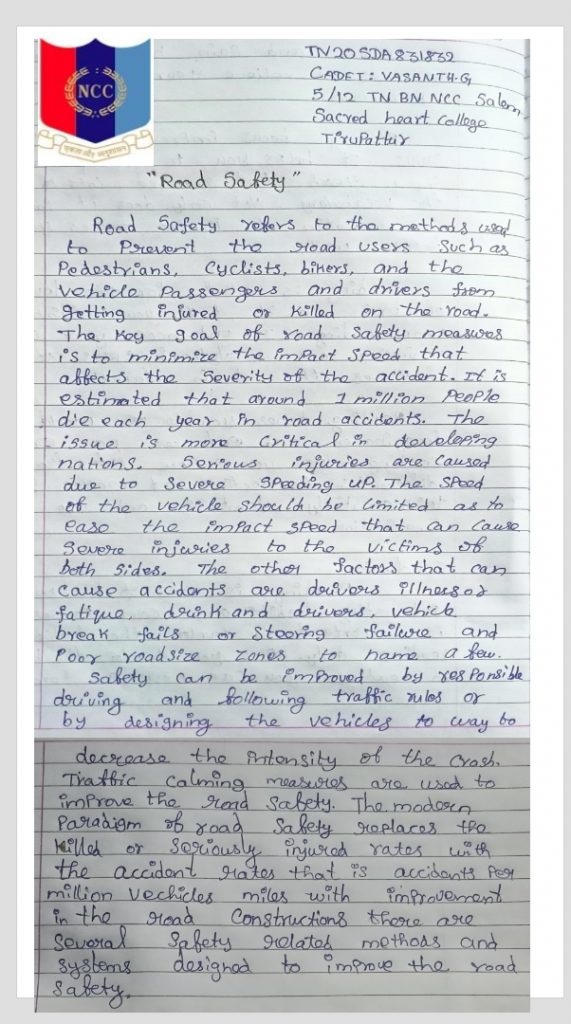 NCC
एकता और अनुशासन
TN20SDA831832
CADET: VASANTH.G
5/12 TN BN NCC Salem
Sacred heart college
Tirupattur
"Road Safety"
Road Safety refers to the methods used
to Prevent the road users Such as
Pedestrians, Cyclists, bikers, and the
Vehicle Passengers and drivers from
getting injured or killed on the road.
The Key goal of road Safety measures
is to minimize the impact Speed that
affects the Severity of the accident. It is
estimated that around 1 million People
die each year in road accidents. The
issue is more Critical in developing
nations. Serious injuries are Caused
due to Severe Speeding up. The Speed
of the vehicle should be limited as to
ease the impact speed that can Cause
Severe injuries to the Victims of
both Sides. The other factors that can
Cause accidents are drivers illness or
fatigue, drink and drivers, vehicle
break fails or Steering failure and
Poor roadsize Zones to name a few.
Safety Can be improved by responsible
driving and following traffic rules or
by designing the vehicles to way to
decrease the intensity of the Crash.
Traffic Calming measures are used to
improve the road Safety. The modern
Paradigm of road Safety replaces the
Killed or Seriously injured rates with
the accident rates that is accidents Per
million vechicles miles with improvement
in the road Constructions there are
Several Safety related methods and
Systems designed to improve the road
Safety.